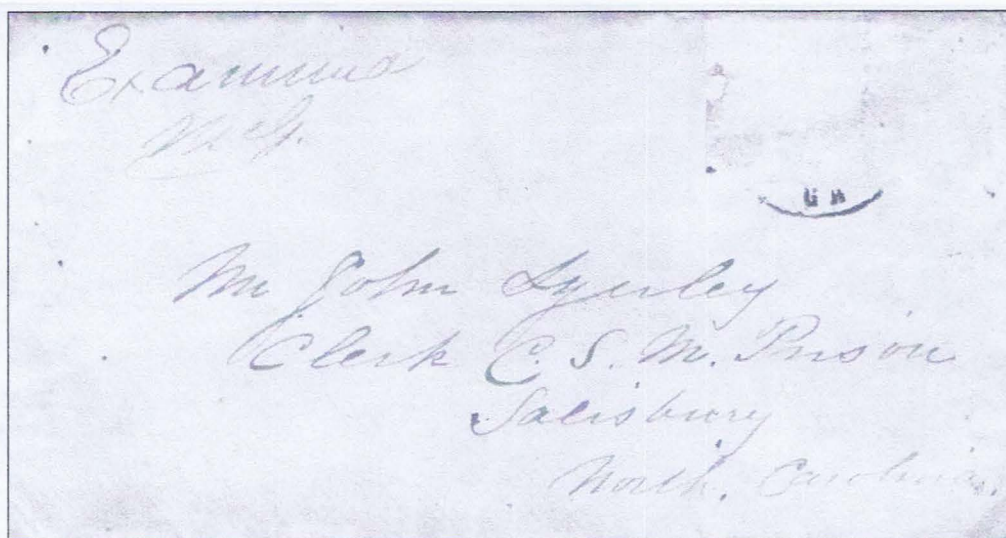 Examined
Mr John Lyerley
Clerk C. S. M. Prison
Salisbury
North. Carolina.